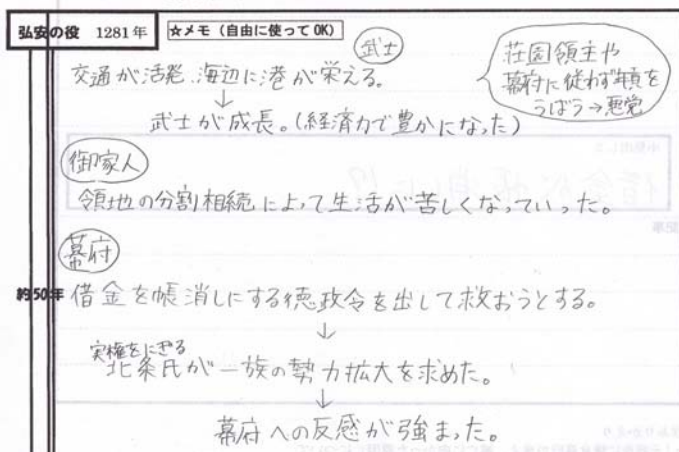 弘安の役 1281年
☆メモ（自由に使ってOK）
武士
交通が活発、海辺に港が栄える。
↓
武士が成長。（経済力で豊かになった）
荘園領主や
幕府に従わず年貢を
うばう→悪党
御家人
領地の分割相続によって生活が苦しくなっていった。
幕府
約50年
借金を帳消しにする徳政令を出して救おうとする。
↓
実権をにぎる
北条氏が一族の勢力拡大を求めた。
↓
幕府への反感が強まった。